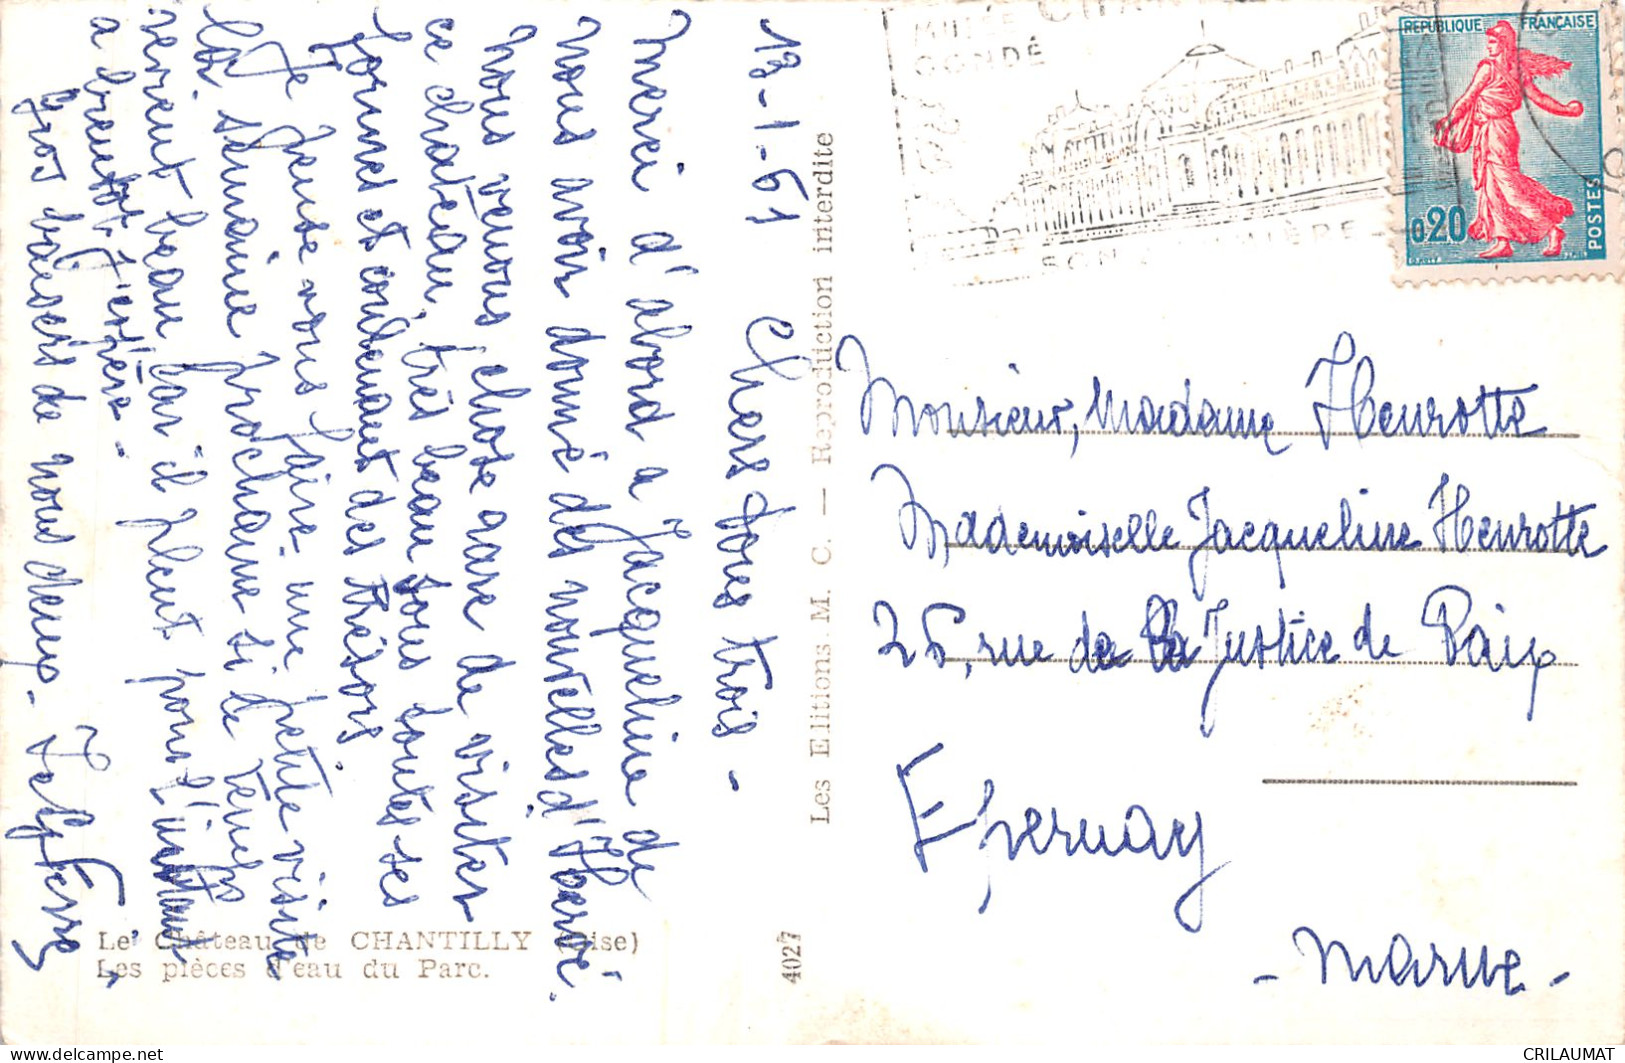 13-1-61
Chers tous trois -
Merci d'abord a Jacqueline de
nous avoir donné des nouvelles d'Hervé.
Nous venons, chose rare de visiter
ce chateau, très beau sous toutes ses
formes et contenant des thésors,
Je pense vous faire une petite visite
la semaine prochaine si le temps
revient beau car il pleut pour l'instant
a bientot, j'espère -
Gros baisers de nous deux -
Le Château de CHANTILLY (Oise)
Les pièces d'eau du Parc.
4027
Les Editions M. C. — Reproduction interdite
MUSÉE
CONDÉ
SON LUMIÈRE
RÉPUBLIQUE FRANÇAISE
0,20
POSTES
Monsieur, Madame Henrotte
Mademoiselle Jacqueline Henrotte
25, rue de la Justice de Paix
Epernay
- Marne -
CRILAUMAT